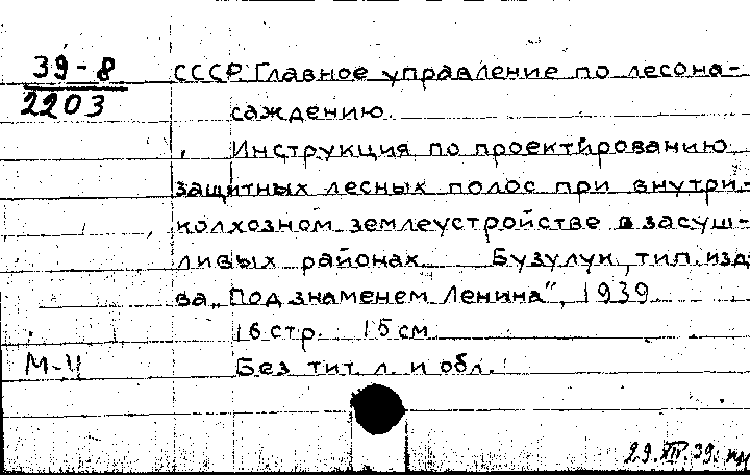 39-8
2203
СССР. Главное управление по лесона-
саждению.
Инструкция по проектированию
защитных лесных полос при внутри-
колхозном землеустройстве в засуш-
ливых районах. Бузулук, тип. изд-
ва „Под знаменем Ленина“, 1939.
16 стр. 15 см.
Без тит. л. и обл.